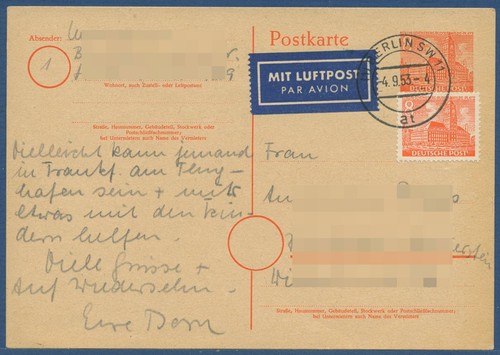 Absender:
Wohnort, auch Zustell- oder Leitpostamt
Straße, Hausnummer, Gebäudeteil, Stockwerk oder
Postschließfachnummer;
bei Untermietern auch Name des Vermieters
Vielleicht kann jemand
in Frankf. am Flug-
hafen sein + mir
etwas mit den Kin-
dern helfen.
Viele Grüsse +
Auf Wiedersehn.
Postkarte
MIT LUFTPOST
PAR AVION
BERLIN SW 11
-4.9.53-4
at
8
DEUTSCHE POST
Frau
Straße, Hausnummer, Gebäudeteil, Stockwerk oder Postschließfachnummer;
bei Untermietern auch Name des Vermieters